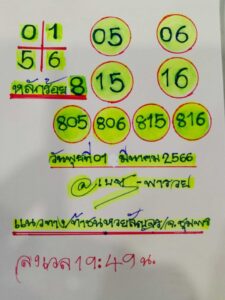 01
05 06
56
15 16
หลักร้อย 8
805 806 815 816
วันพุธที่ 01 มีนาคม 2566
@เพชร-พารวย
แนวทาง/ท้าชนหวยสัญจร/จ.ชุมพร
ลงเวลา 19:49 น.